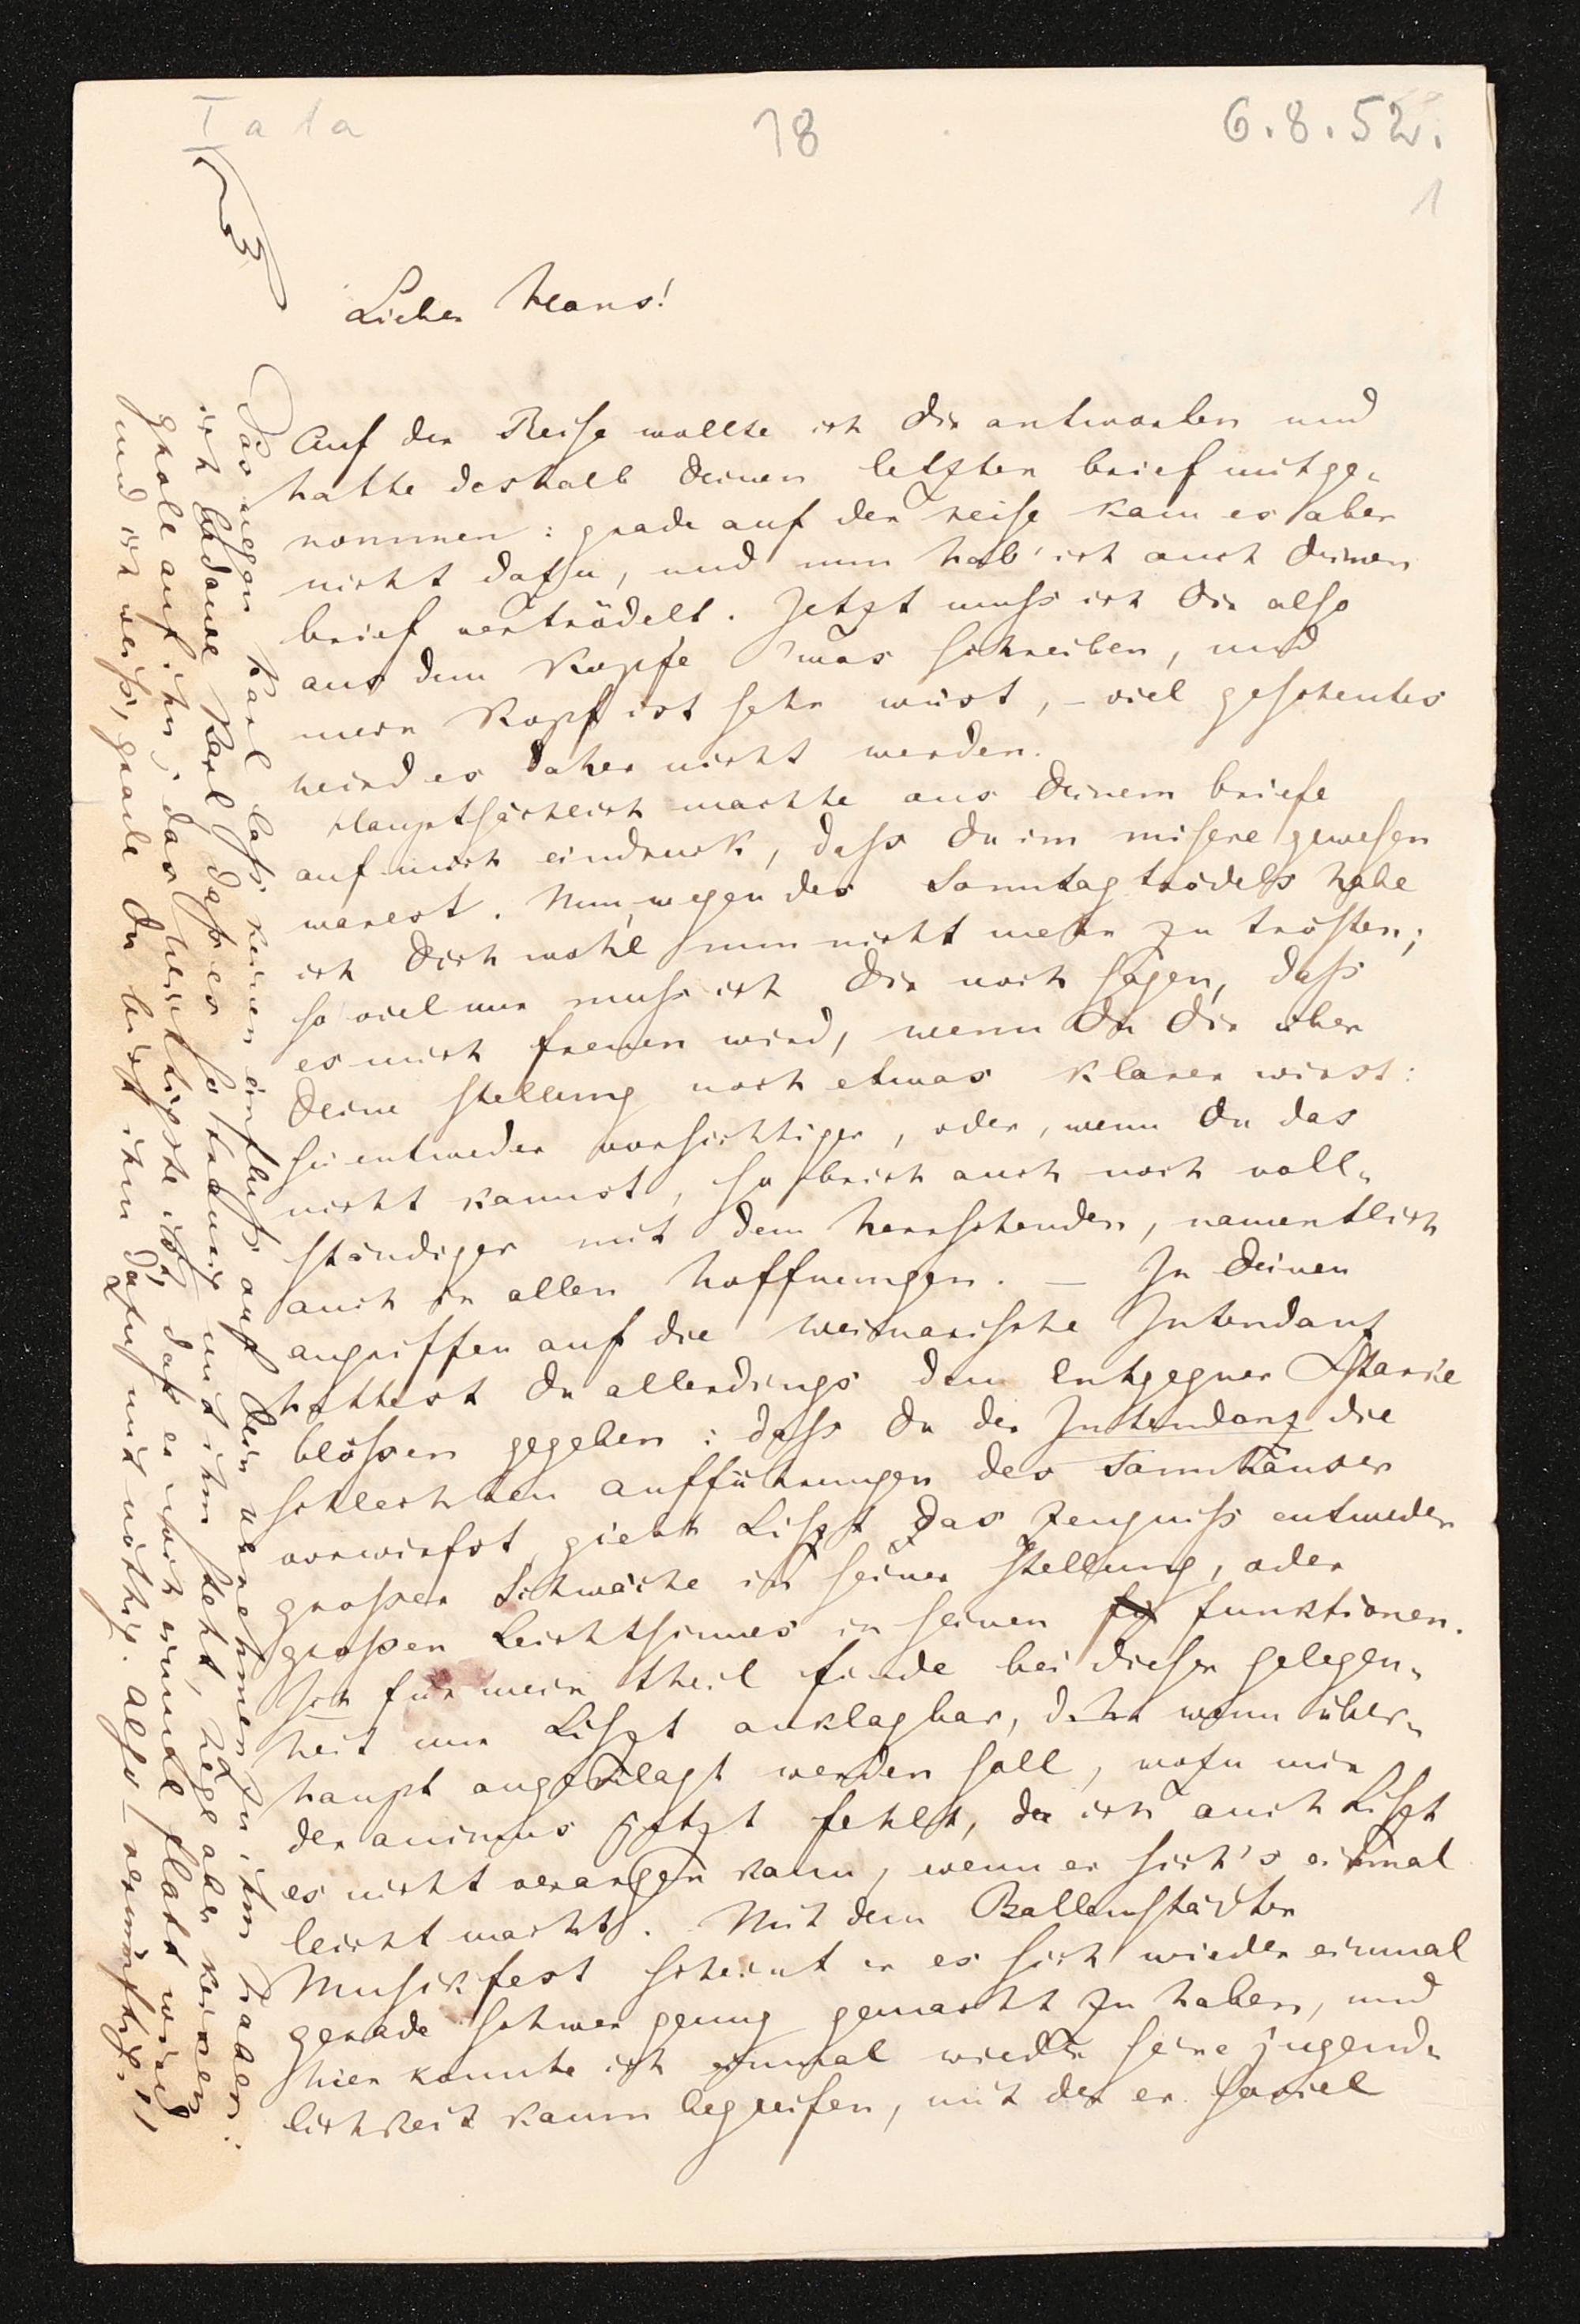 I a 1a
18
6.8.52.
1
Lieber Hans!
Auf der Reise wollte ich Dir antworten und
hatte deshalb Deinen letzten brief mitge-
nommen: grade auf der reise kam es aber
nicht dazu, und nun hab' ich auch Deinen
brief vertrödelt. Jetzt muss ich Dir also
aus dem Kopfe was schreiben, und
mein Kopf ist sehr wüst, – viel gescheutes
wird es daher nicht werden.
Hauptsächlich machte aus Deinem briefe
auf mich eindruck, dass Du im misere gewesen
warest. Nun, wegen des Sonntag trödels habe
ich Dich wohl nun nicht mehr zu trösten;
so viel nur muss ich Dir noch sagen, dass
es mich freuen wird, wenn Du Dir über
Deine stellung noch etwas klarer wirst:
sei entweder vorsichtiger, oder, wenn Du das
nicht kannst, so brich auch noch voll-
ständiger mit dem herrschenden, namentlich
auch in allen hoffnungen. – In Deinen
angriffen auf die weimarische Intendanz
hattest Du allerdings dem entgegner starke
blössen gegeben: dass Du der Intendanz die
schlechten aufführungen des Tannhäuser
vorwirfst, giebt Liszt das zeugniss entweder
grosser Schwäche in seiner stellung, oder
grossen leichtsinnes in seinen funktionen.
Ich für mein theil finde bei dieser gelegen-
heit nur Liszt anklagbar, d.h. wenn über-
haupt angeklagt werden soll, wozu mir
der animus jetzt fehlt, da ich auch Liszt
es nicht verargen kann, wenn er sich's einmal
leicht macht. Mit dem Ballenstädter
Musikfest scheint er es sich wieder einmal
gerade schwer genug gemacht zu haben, und
hier konnte ich einmal wieder seine jugend-
lichkeit kaum begreifen, mit der er soviel
Was wegen Karl lass keinen einfluss auf Dein benehmen zu ihm haben:
ich bedaure Karl dass es so traurig mit ihm steht, hege aber keinen
groll auf ihn; das wichtigste ist, dass er noch einmal flott wird
und ich weiss, grade Du bist ihm dazu mit nöthig. Also – vernünftig!!